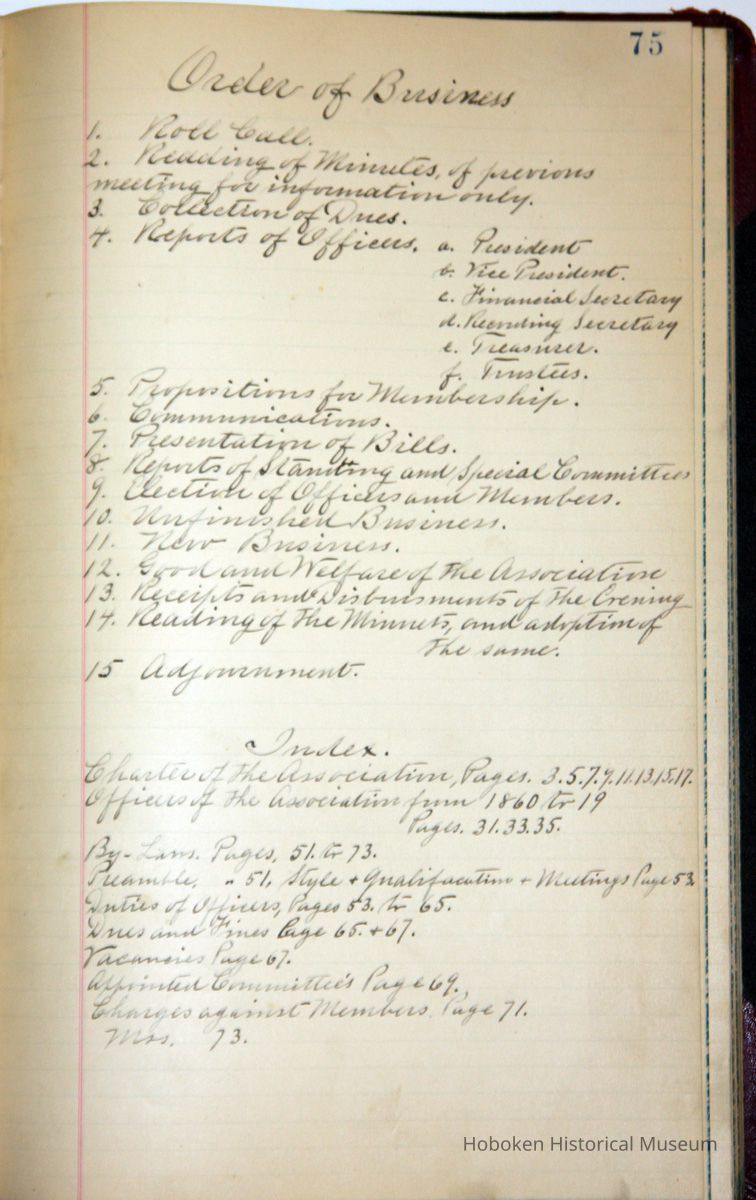 75
Order of Business
1. Roll Call.
2. Reading of Minutes, of previous
meeting for information only.
3. Collection of Dues.
4. Reports of Officers. a. President
b. Vice President.
c. Financial Secretary
d. Recording Secretary
e. Treasurer.
f. Trustees.
5. Propositions for Membership.
6. Communications.
7. Presentation of Bills.
8. Reports of Standing and Special Committees
9. Election of Officers and Members.
10. Unfinished Business.
11. New Business.
12. Good and Welfare of the Association
13. Receipts and Disbursments of the Evening
14. Reading of the Minnets, and adoption of
the same.
15 Adjournment.
Index.
Charter of the Association, Pages. 3.5.7.9.11.13.15.17.
Officers of the Association from 1860 to 19
Pages. 31.33.35.
By-Laws. Pages, 51. to 73.
Preamble, " 51. Style + Qualifacation + Meetings Page 53.
Duties of Officers, Pages 53. to 65.
Dues and Fines Page 65. + 67.
Vacancies Page 67.
Appointed Committee's Page 69.
Charges against Members. Page 71.
73.
Hoboken Historical Museum